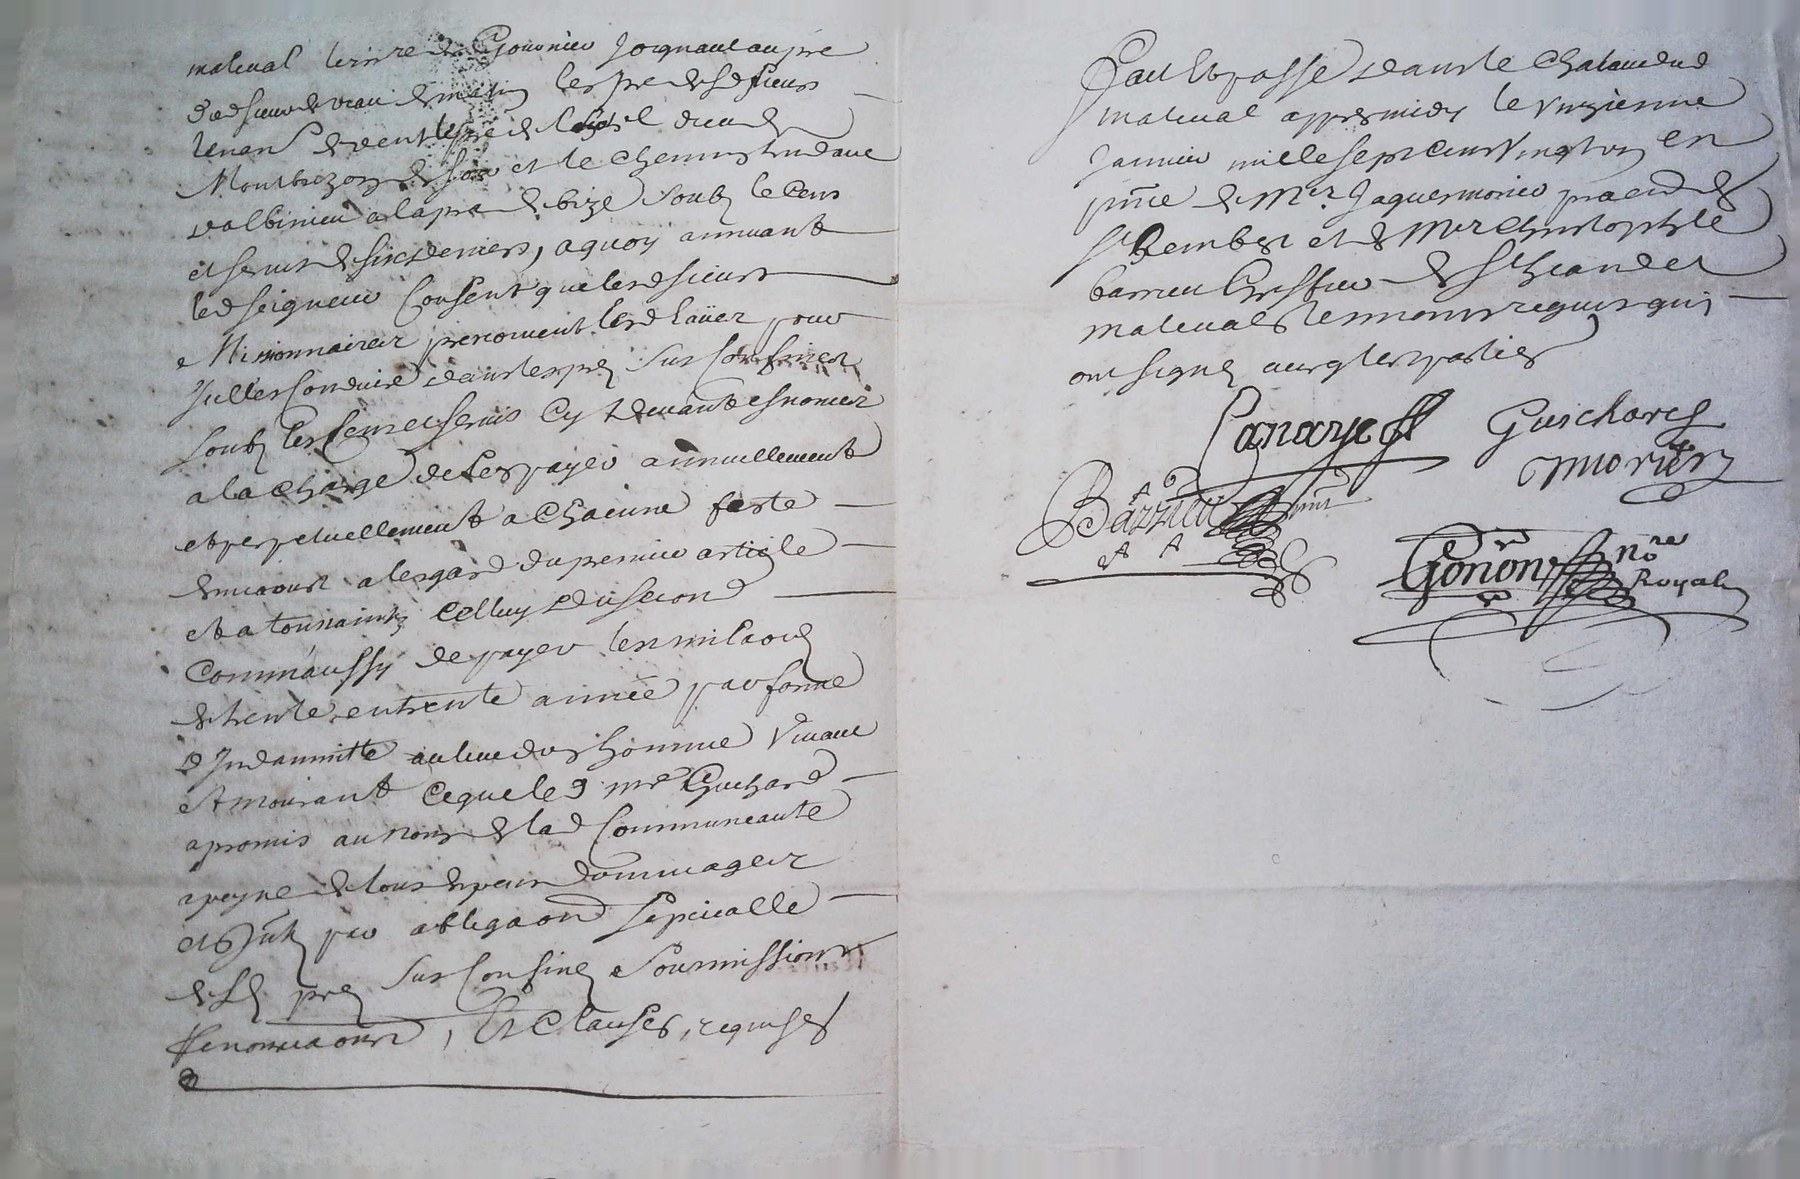 maleval terre de Gournier joignant au pre
dud sieur de veau de matin les pre desd sieurs
de vent le pre de l'hotel dieu de
Montbrizon de soir et le chemin tendant
valbinieu a la pra de bize soubz le cens
et servis de six deniers, a quoy annuant
led seigneur consent que lesd sieurs
Missionnaires prenoient lesd eaues pour
Icelles conduire dans les prez sus confines
soubz les cens et servis cy devant esnomez
a la charge de les payer annuellement
et perpetuellement a chacune feste
de micaoust a lesgard du premier article
et a toussaintz celluy du second
comm'aussy de payer les milaods
de trente en trente année par forme
d'Indamnitté au lieu d'un homme vivant
et mourant ce que led mre Guichard
a promis au nom de lad Communeauté
a peyne de tous despens dommages
et Intz par obligaon speciealle
desd prez sus confinez soumissions
Renonciaons, Et Clauses, requises
Fait et passé dans le Chataud dud
maleval appres midy le vingtienne
Janvier mille sept cent vingt en
pnce de Mer Jaques morier praer de
St Rembert et de Mer Christophle
barrieu Greffier de St hrand et
maleval tesmoins requis qui
ont signé avec les parties
Lanarye Guichard
morier
Barrieu
Gonon nre
Royal